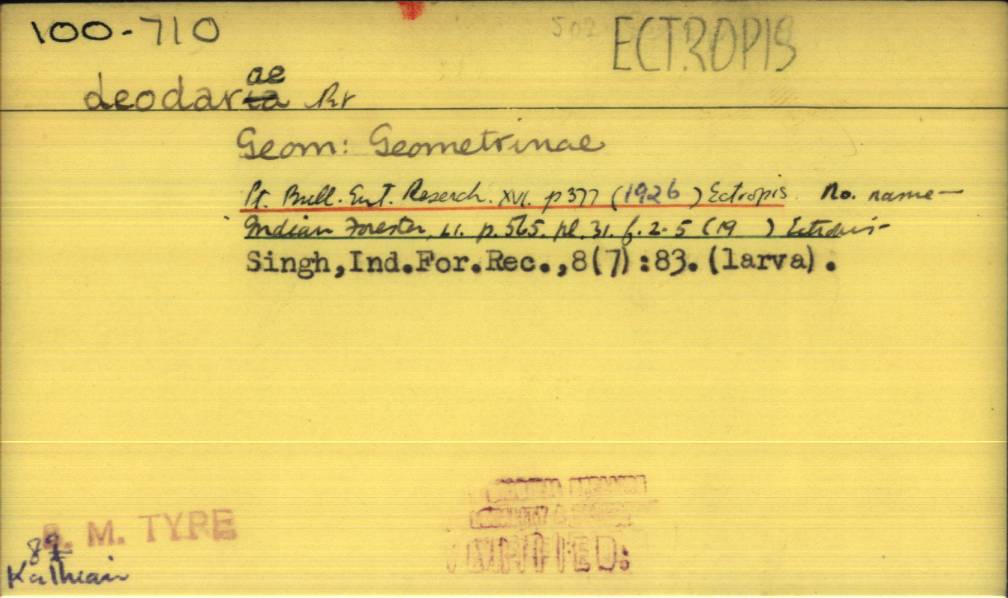 100-710
ECTROPIS
deodarae Prt
Geom: Geometrinae
Pt. Bull. Ent. Reserch. XVI. p 377 (1926) Ectropis No. name—
Indian Forester, 61. p. 565. pl. 31. f. 2-5 (19 ) Ectropis—
Singh,Ind.For.Rec.,8(7):83.(larva).
B. M. TYPE
VERIFIED: